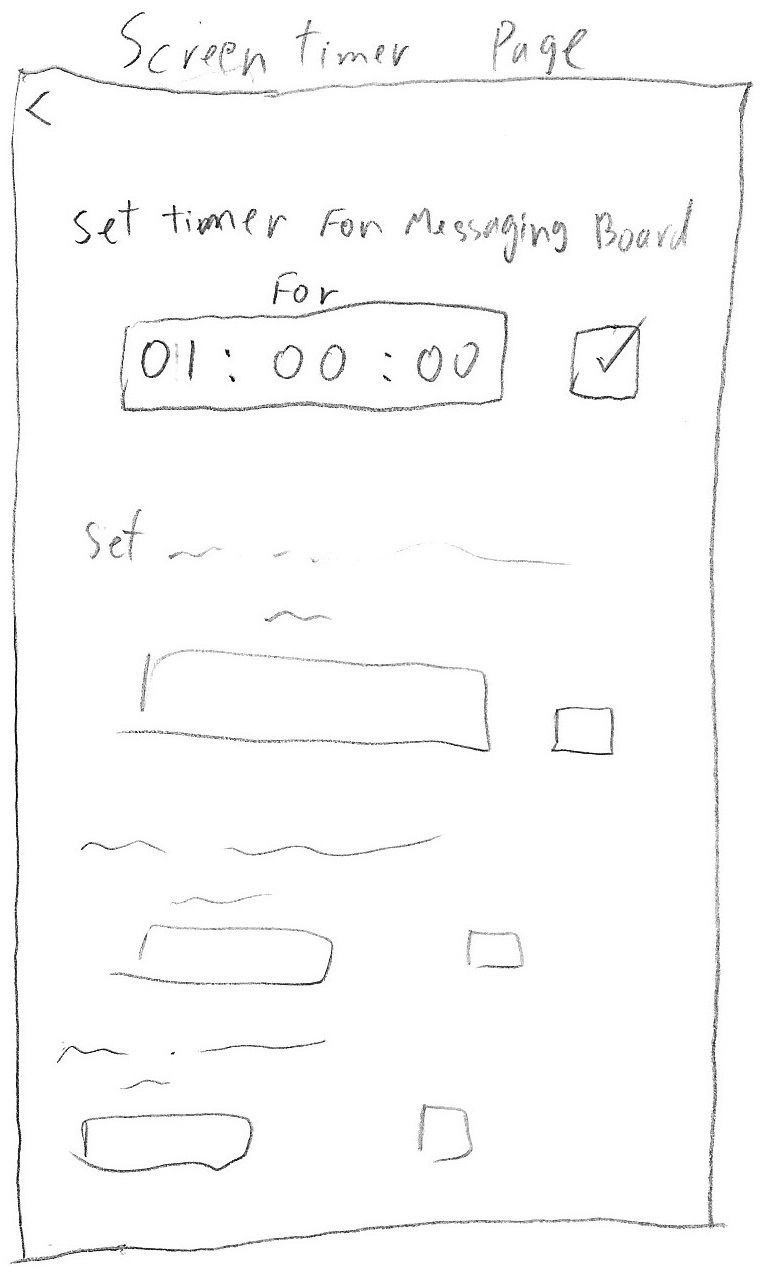 Screen timer Page
<
Set timer For Messaging Board
For
01 : 00 : 00
Set